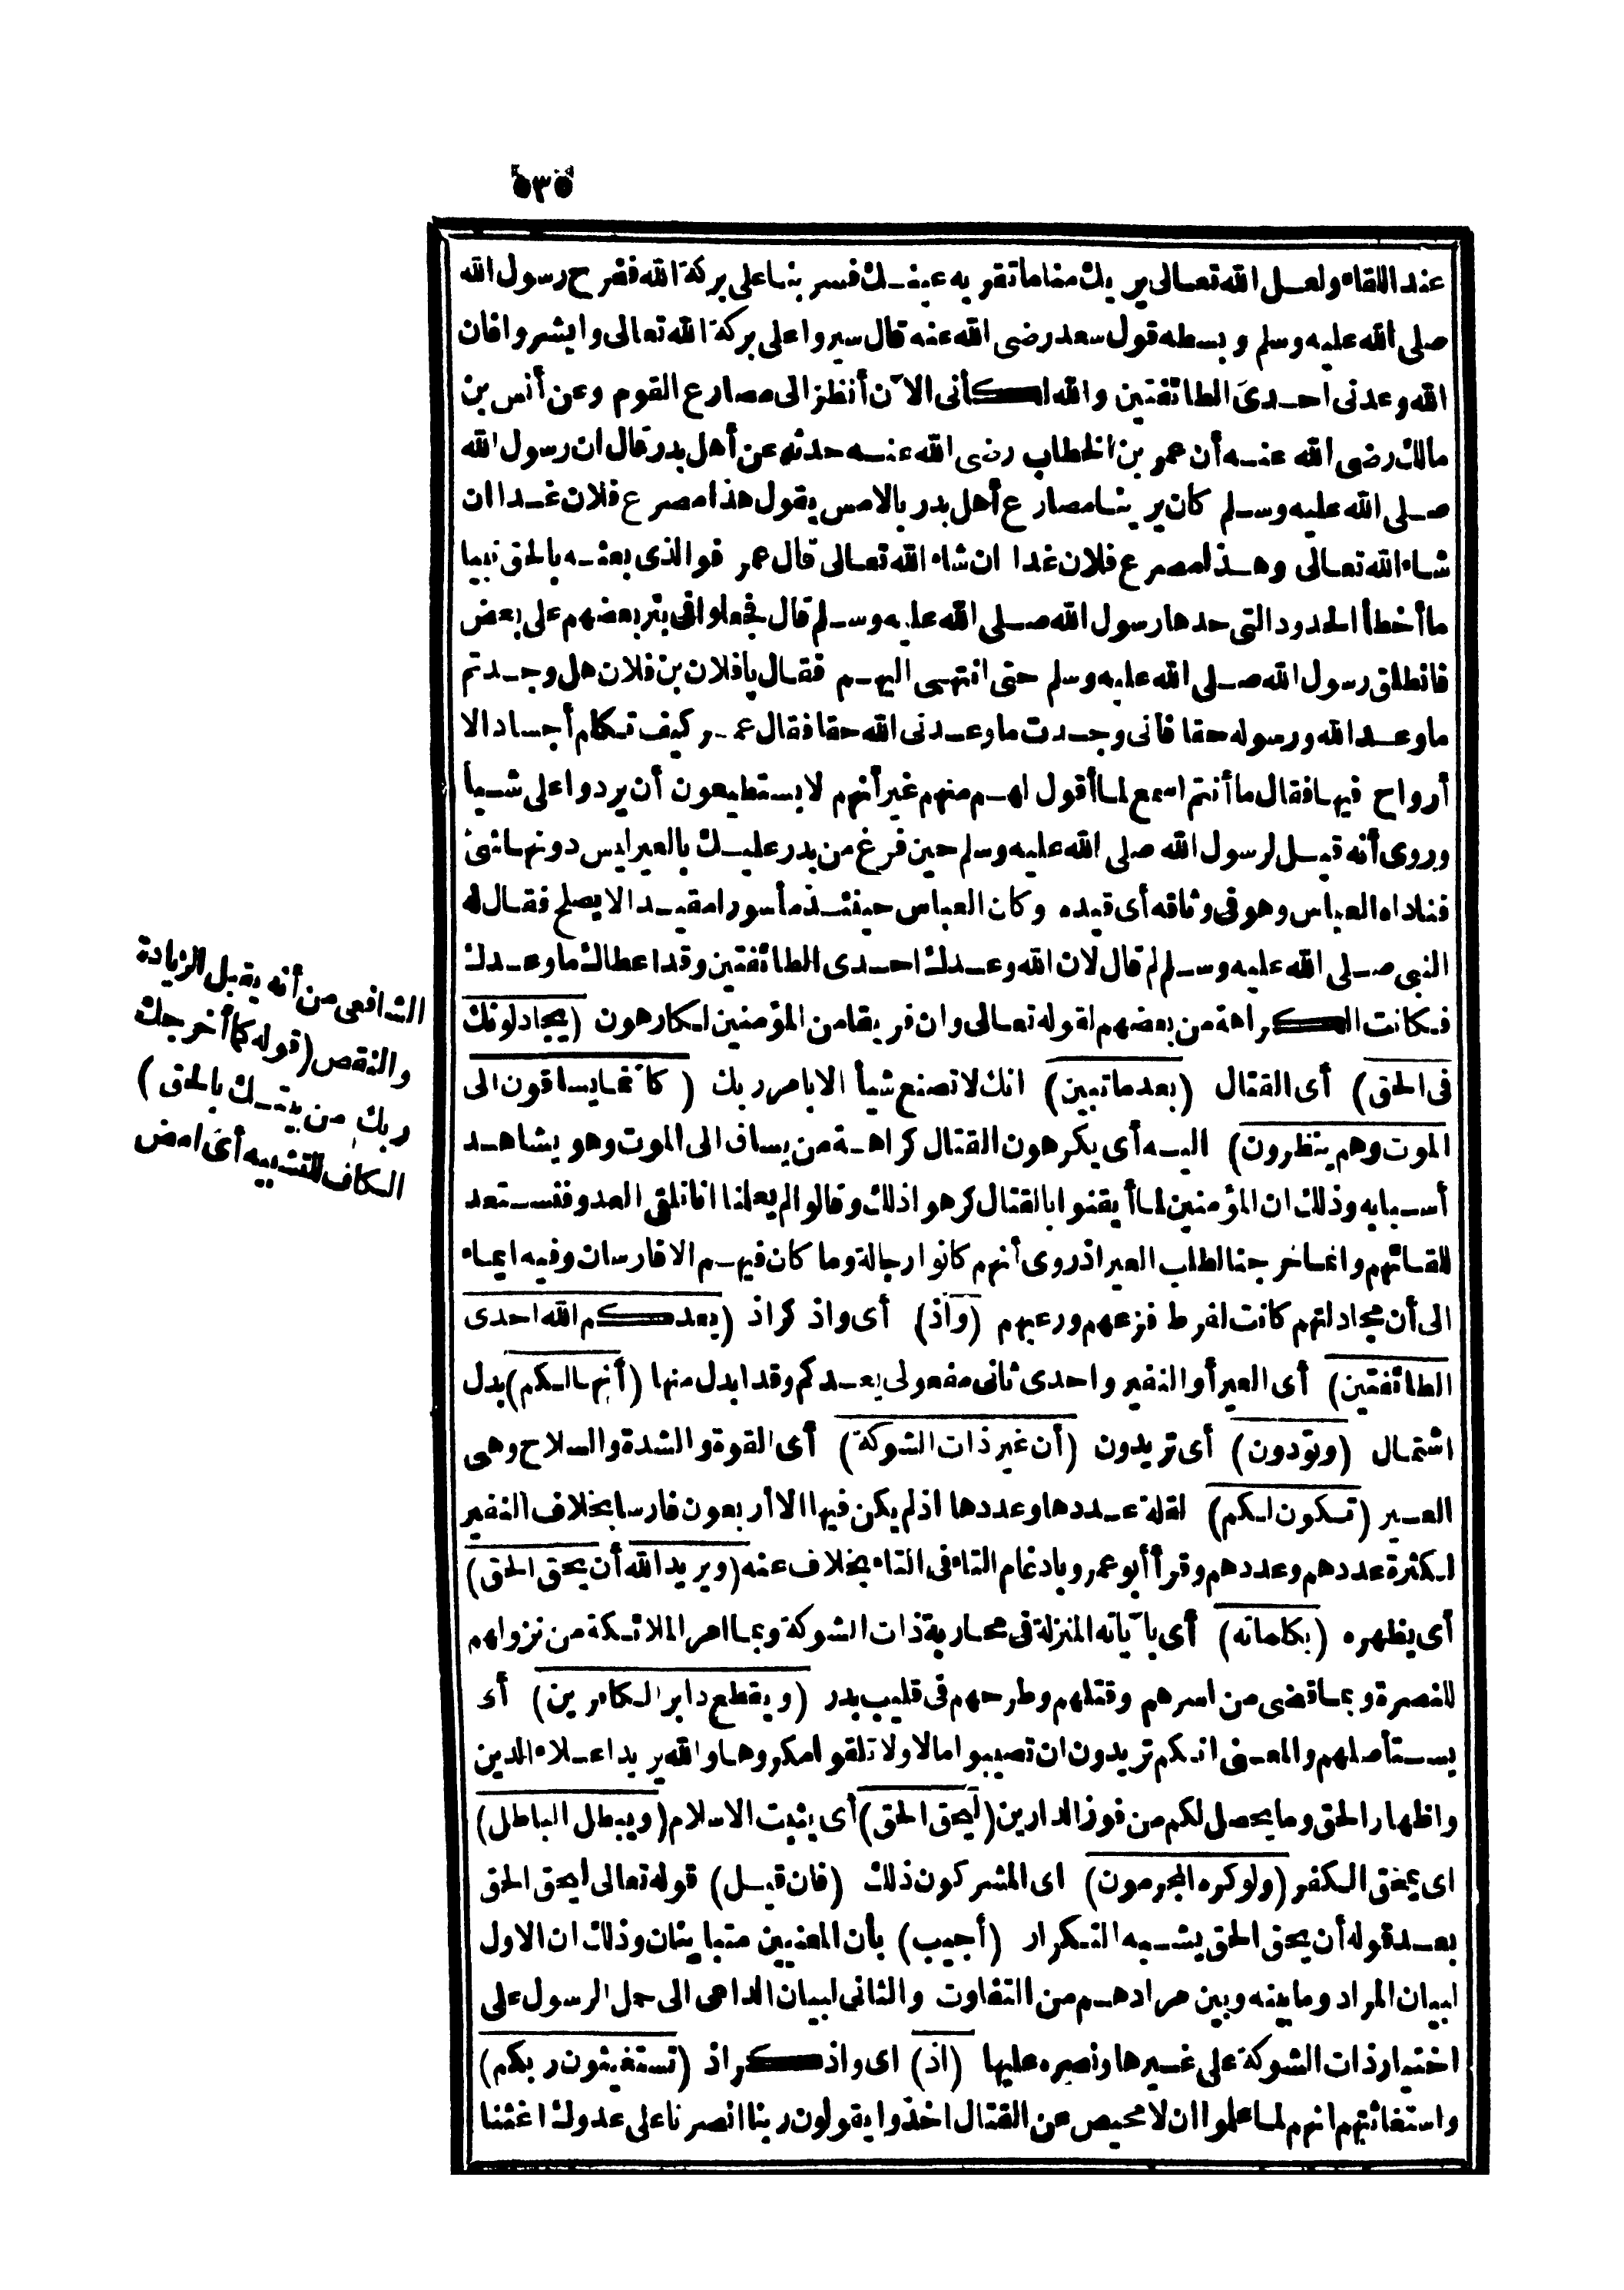 ٥٣٥
عند اللقاء ولعل الله تعالى يريك منا ما تقر به عينك فسر بنا على بركة الله ففرح رسول الله
صلى الله عليه وسلم وبسطه قول سعد رضى الله عنه قال سيروا على بركة الله تعالى وابشروا فان
الله وعدنى احدى الطائفتين والله لكأنى الآن أنظر الى مصارع القوم وعن أنس بن
مالك رضى الله عنه أن عمر بن الخطاب رضى الله عنه حدثه عن أهل بدر قال ان رسول الله
صلى الله عليه وسلم كان يرينا مصارع أهل بدر بالامس يقول هذا مصرع فلان غدا ان
شاء الله تعالى وهذا مصرع فلان غدا ان شاء الله تعالى قال عمر فوالذى بعثه بالحق نبيا
ما أخطأ الحدود التى حدها رسول الله صلى الله عليه وسلم قال فجعلوا فى بئر بعضهم على بعض
فانطلق رسول الله صلى الله عليه وسلم حتى انتهى اليهم فقال يا فلان بن فلان هل وجدتم
ما وعد الله ورسوله حقا فانى وجدت ما وعدنى الله حقا فقال عمر كيف تكلم أجسادا لا
أرواح فيها فقال ما أنتم اسمع لما أقول لهم منهم غير أنهم لا يستطيعون أن يردوا على شيأ
وروى أنه قيل لرسول الله صلى الله عليه وسلم حين فرغ من بدر عليك بالعير ليس دونها شئ
فناداه العباس وهو فى وثاقه أى قيده وكان العباس حينئذ مأسورا مقيدا لا يصلح فقال له
النبى صلى الله عليه وسلم لم قال لان الله وعدك احدى الطائفتين وقد اعطاك ما وعدك
فكانت الكراهة من بعضهم لقوله تعالى وان فريقا من المؤمنين لكارهون (يجادلونك
فى الحق) أى القتال (بعد ما تبين) انك لا تصنع شيأ الا بامر ربك (كأنما يساقون الى
الموت وهم ينظرون) اليه أى يكرهون القتال كراهة من يساق الى الموت وهو يشاهد
أسبابه وذلك ان المؤمنين لما أيقنوا بالقتال كرهوا ذلك وقالوا لم يعلمنا انا نلقى العدو فنستعد
للقائهم وانما خرجنا لطلب العير اذ روى أنهم كانوا رجالة وما كان فيهم الا فارسان وفيه ايماء
الى أن مجادلتهم كانت لفرط فزعهم ورعبهم (واذ) أى واذ كر اذ (يعدكم الله احدى
الطائفتين) أى العير أو النفير واحدى ثانى مفعولى يعدكم وقد ابدل منها (أنها لكم) بدل
اشتمال (وتودون) أى تريدون (أن غير ذات الشوكة) أى القوة والشدة والسلاح وهى
العير (تكون لكم) لقلة عددها وعددها اذ لم يكن فيها الا أربعون فارسا بخلاف النفير
لكثرة عددهم وعددهم وقرأ أبو عمرو بادغام التاء فى التاء بخلاف عنه (ويريد الله أن يحق الحق)
أى يظهره (بكلماته) أى بآياته المنزلة فى محاربة ذات الشوكة وبما امر الملائكة من نزولهم
للنصرة وبما قضى من اسرهم وقتلهم وطرحهم فى قليب بدر (ويقطع دابر الكافرين) أى
يستأصلهم والمعنى انكم تريدون ان تصيبوا مالا ولا تلقوا مكروها والله يريد اعلاء الدين
واظهار الحق وما يحصل لكم من فوز الدارين (ليحق الحق) أى يثبت الاسلام (ويبطل الباطل)
اى يمحق الكفر (ولو كره المجرمون) اى المشركون ذلك (فان قيل) قوله تعالى ليحق الحق
بعد قوله أن يحق الحق يشبه التكرار (أجيب) بأن المعنيين متباينان وذلك ان الاول
لبيان المراد وما بينه وبين مرادهم من التفاوت والثانى لبيان الداعى الى حمل الرسول على
اختيار ذات الشوكة على غيرها ونصره عليها (اذ) اى واذكر اذ (تستغيثون ربكم)
واستغاثتهم انهم لما علموا ان لا محيص عن القتال اخذوا يقولون ربنا انصرنا على عدوك اغثنا
الشافعى من أنه يقبل الزيادة
والنقص (قوله كما أخرجك
ربك من بيتك بالحق)
الكاف للتشبيه أى امض